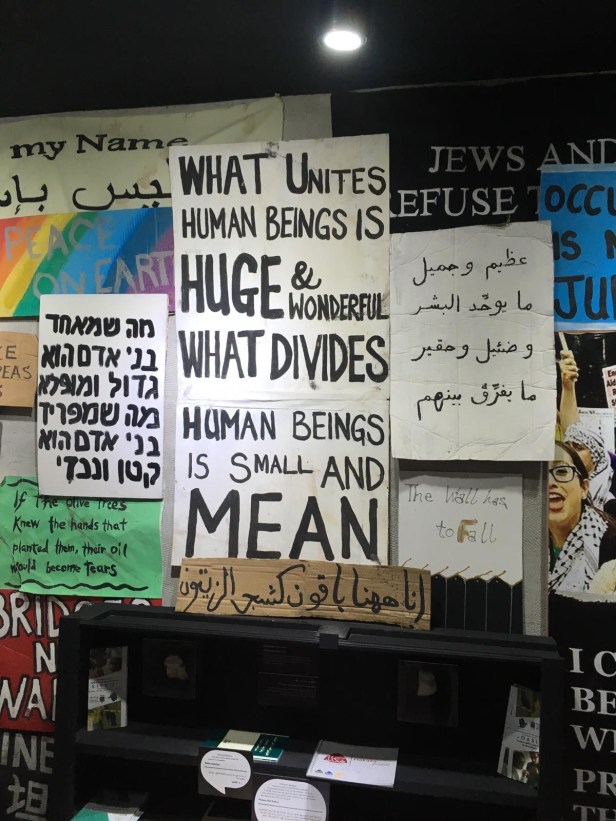 my Name
PEACE
ON EARTH
WHAT UNITES
HUMAN BEINGS IS
HUGE &
WONDERFUL
WHAT DIVIDES
HUMAN BEINGS
IS SMALL AND
MEAN
JEWS AND
REFUSE
OCCU
IS N
JU
מה שמאחד
בני אדם הוא
גדול ומופלא
מה שמפריד
בני אדם הוא
קטן ונבזי
عظيم وجميل
ما يوحّد البشر
وضئيل وحقير
ما يفرّق بينهم
PEAS
If the olive trees
knew the hands that
planted them, their oil
would become tears
The Wall has
to Fall
إنا ههنا باقون كشجر الزيتون
BRIDGE
N
WA
INE
I C
BE
WE
PR
TH